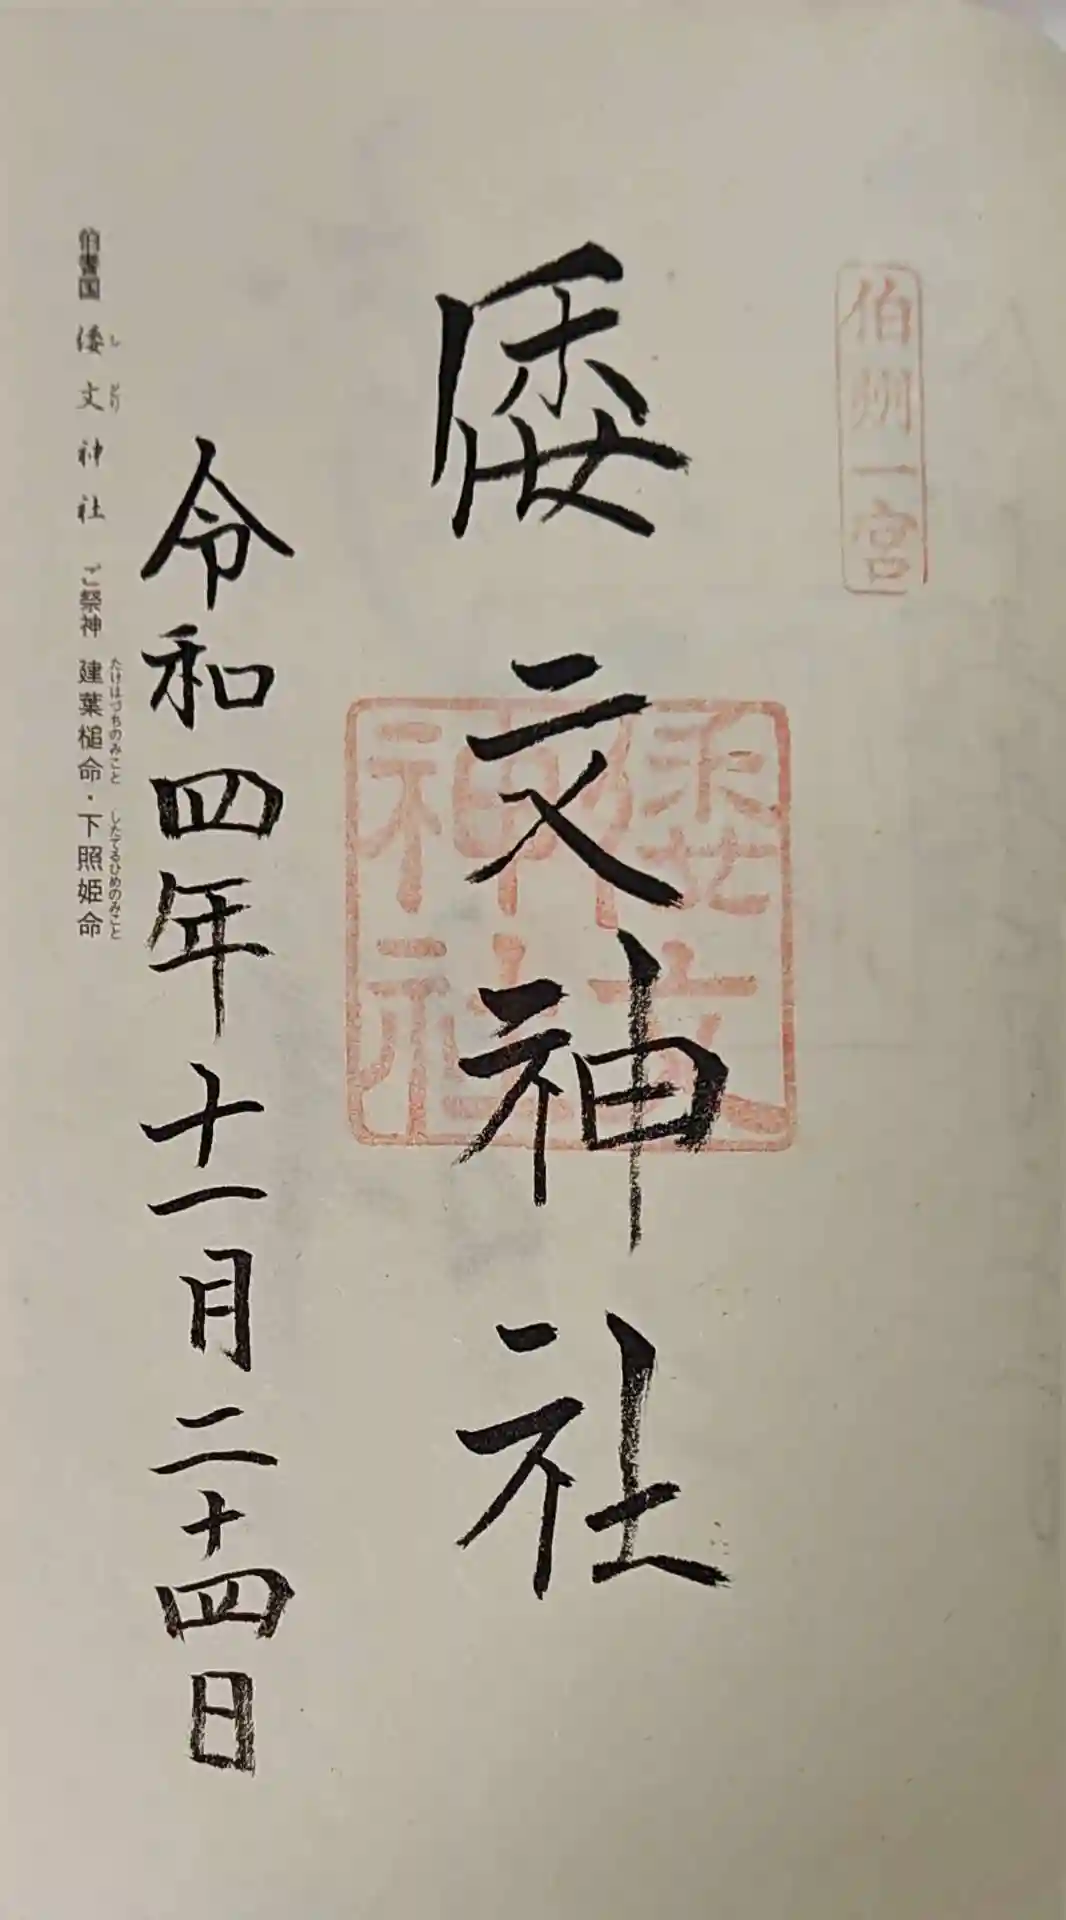 伯州一宮
倭文神社
倭文神社
令和四年十一月二十四日
伯耆国 倭文神社 ご祭神 建葉槌命・下照姫命
しどり たけはづちのみこと したてるひめのみこと